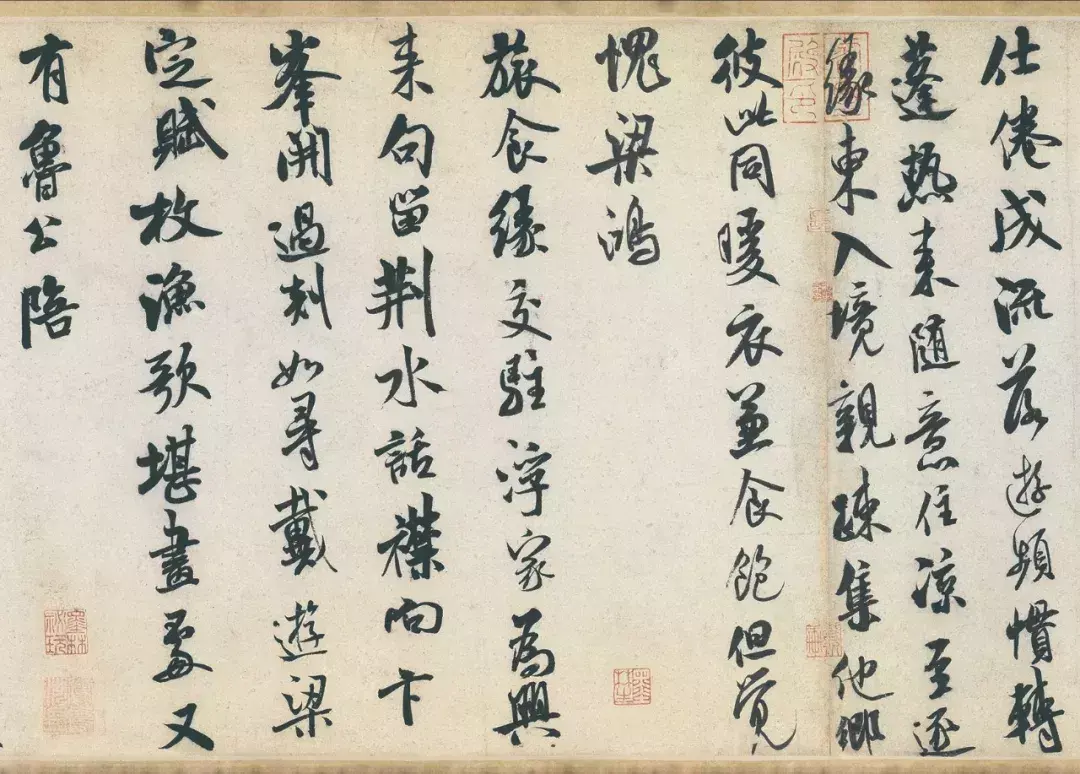 仕倦成流落遊頻慣轉
蓬熱来随意住涼至逐
緣東入境親疎集他鄉
彼此同暖衣兼食飽但覺
愧梁鴻
旅食緣交駐浮家為興
来句留荆水話襟向卞
峯開過剡如尋戴遊梁
定賦枚漁歌堪畫處又
有魯公陪